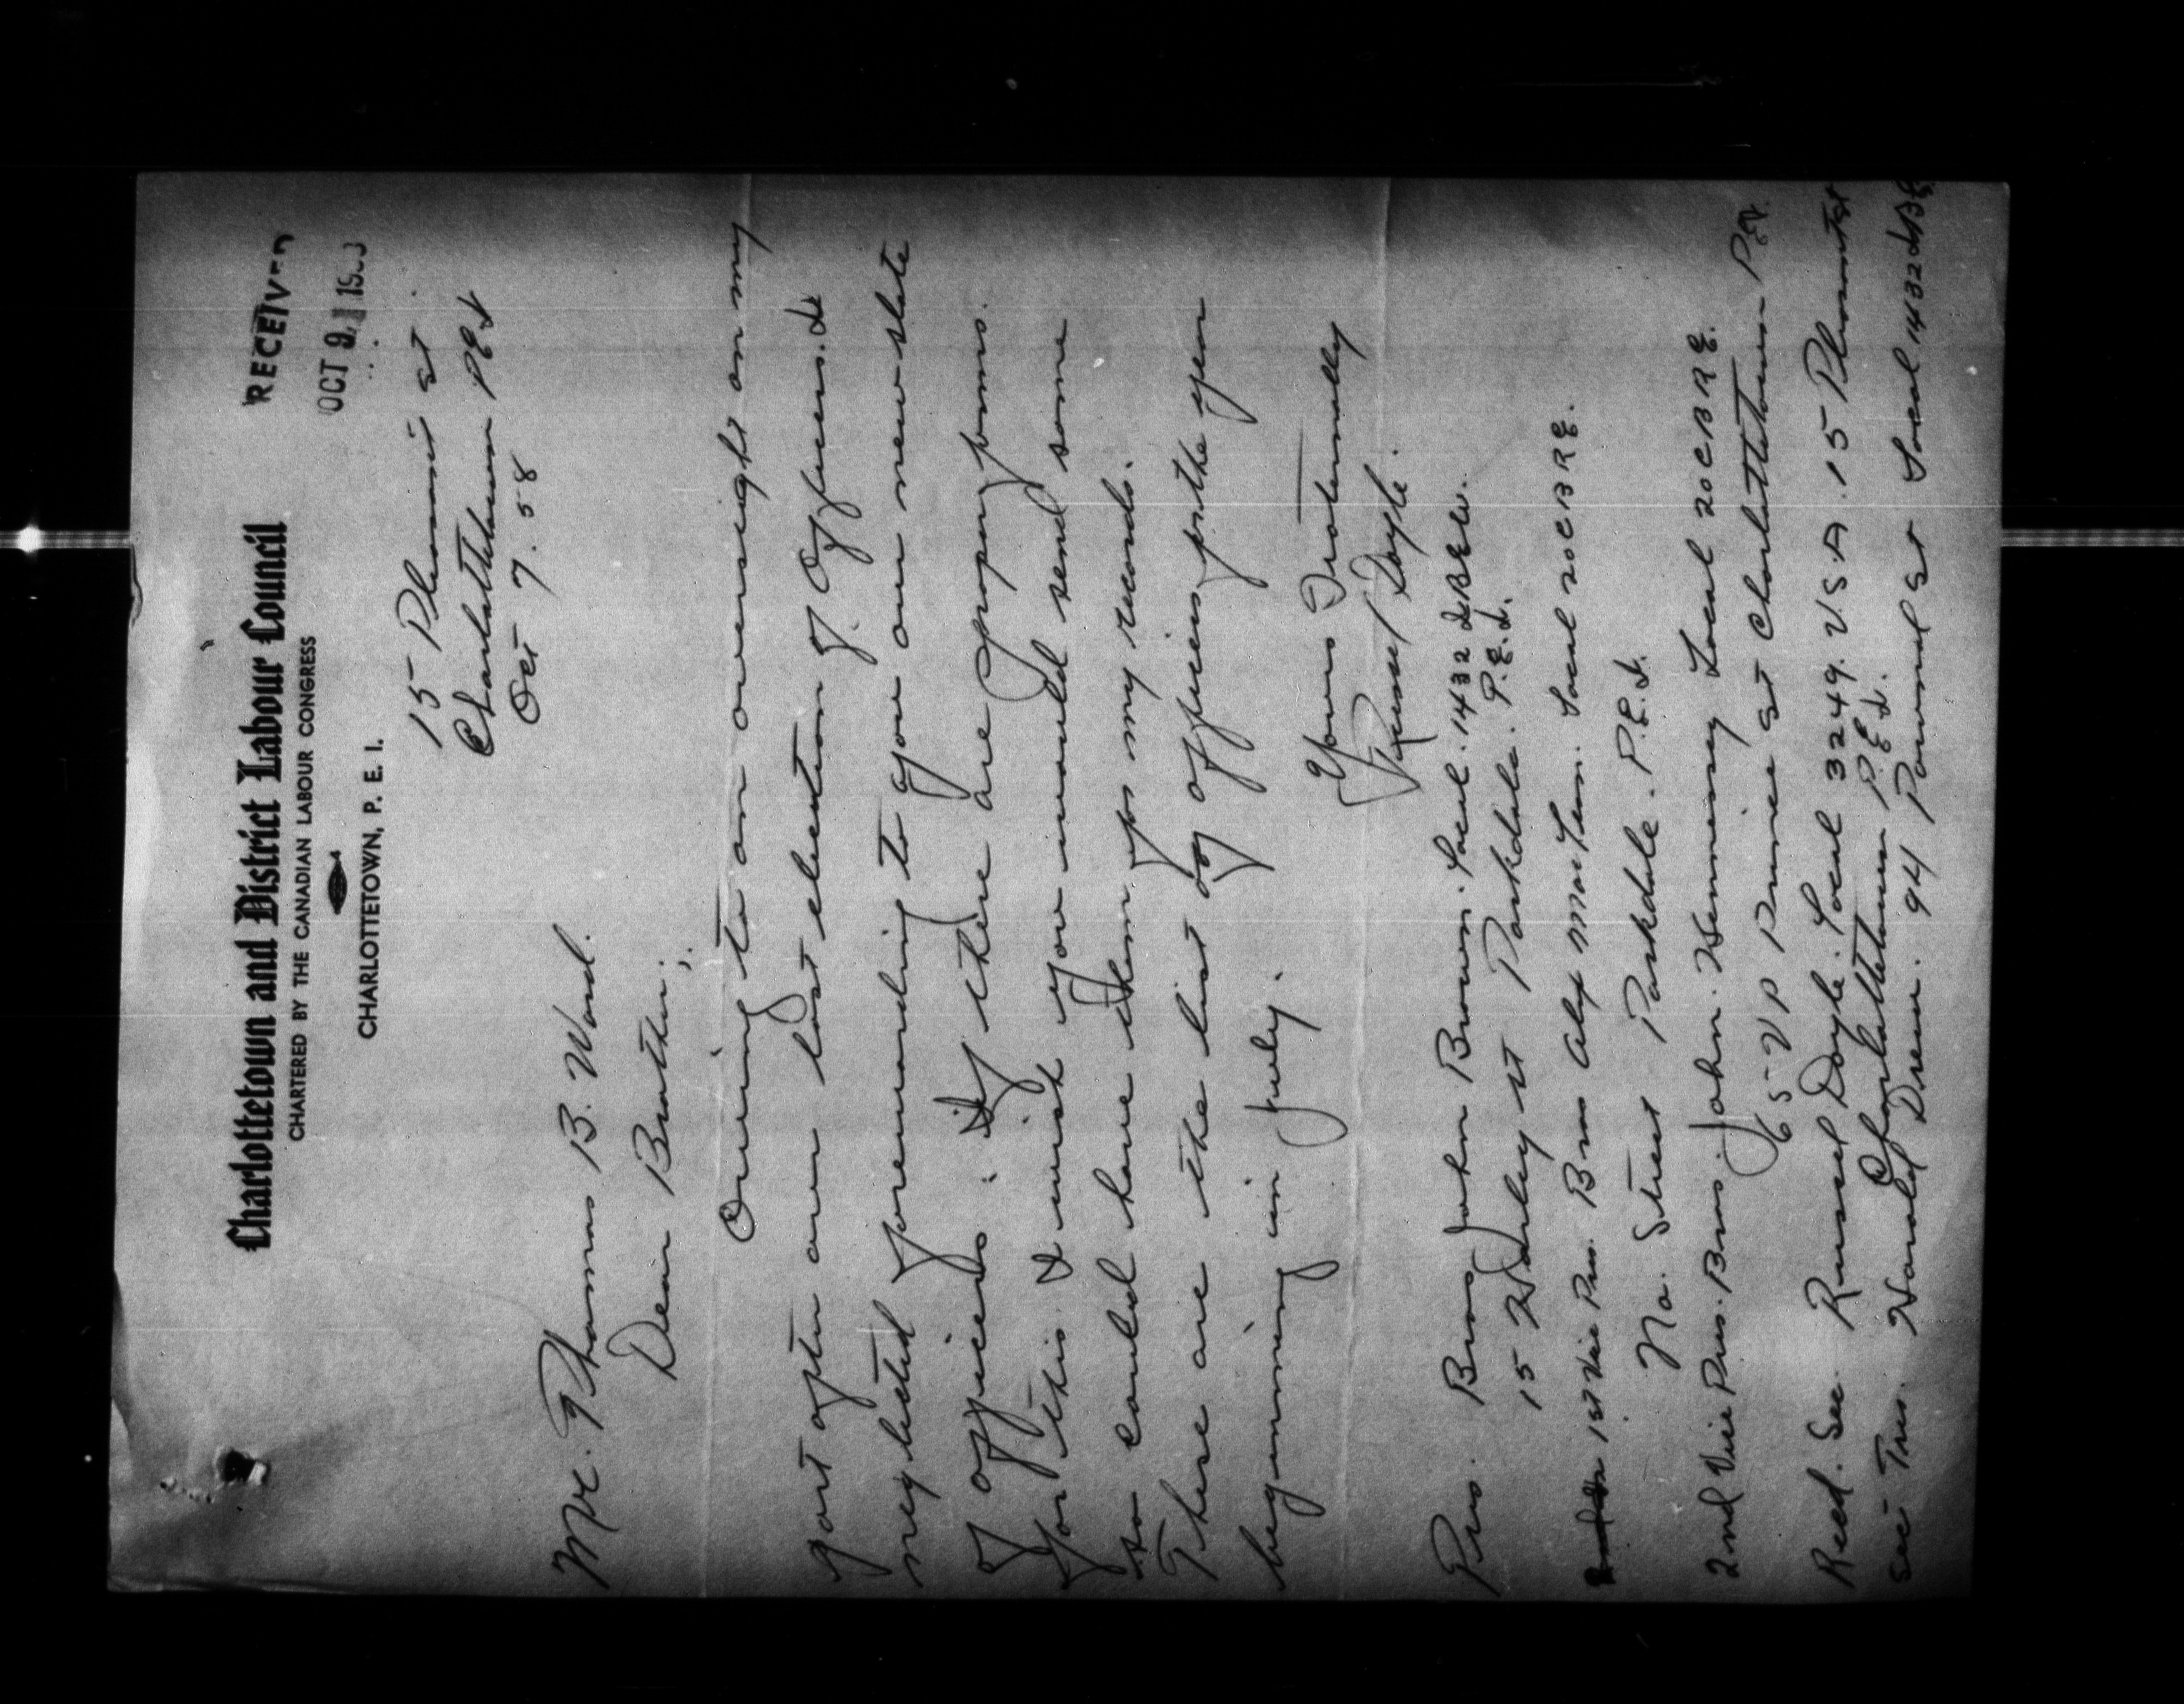 Charlottetown and District Labour Council
CHARTERED BY THE CANADIAN LABOUR CONGRESS
CHARLOTTETOWN, P. E. I.
RECEIVED
OCT 9
15 St
Charlottetown PEI
Oct 7. 58
Mr. Thomas B. Ward.
Dear Brother;.
Owing to an oversight on my
part after our last election of Officers. I
neglected forwarding to you our new slate
of officers. If there are proper forms.
for this I wish you would send some
so could have them for my records.
These are the list of officers for the year
beginning in July.
Yours Fraternally
Russel Doyle.
Pres. Bros John Brown. Local. 1432 IBEW.
15 St Parkdale. P.E.I.
1st Vice Pres. Bros Alex MacLean. Local 20 CBRE.
No. Street Parkdale. P.E.I.
2nd Vice Pres. Bros. John. Hennessy Local 20 CBRE.
65 VP Prince St Charlottetown PEI.
Recd. Sec. Russel Doyle. Local 3249. U.S.A. 15 St
Charlottetown P.E.I.
Sec Tres. Harold Drew. 94 Pownal St Local 1432 IBE